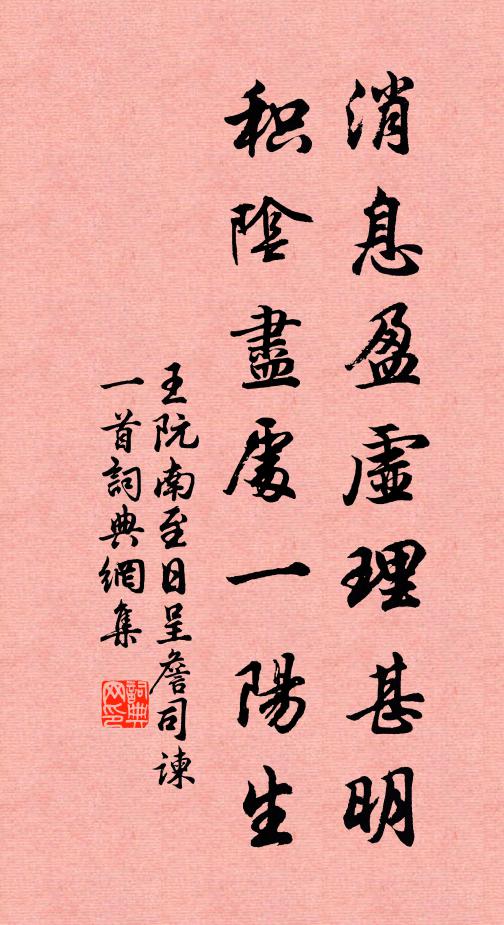 消息盈虛理甚明
积陰盡處一陽生
王阮南至日呈詹司諫
一首詞典網集
詞典网印